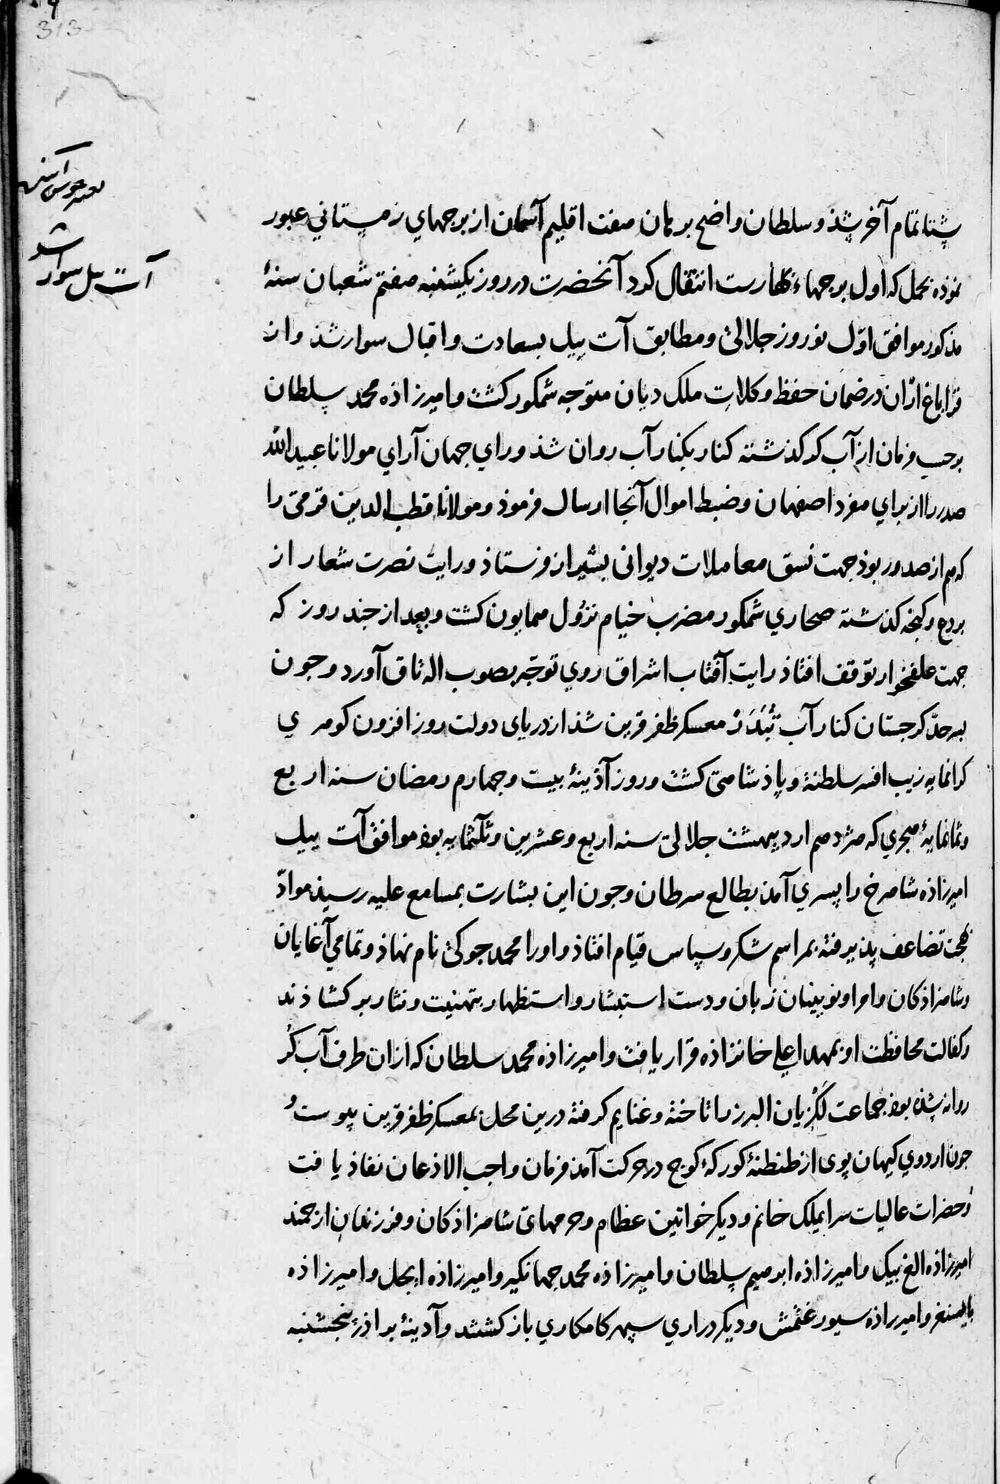 313
شتا تمام آخر شذ و سلطان واضح برهان هفت اقلیم آسمان از برجهای زمستانی عبور
نموذه بحمل که اول برجهاء بهارست انتقال کرد آنحضرت در روز یکشنبه هفتم شعبان سنهٔ
مذکور موافق اوّل نوروز جلالی و مطابق آت ییل بسعادت و اقبال سوار شذ و از
قراباغ ارّان در ضمان حفظ و کلاات ملک دیّان متوجه شمکور کشت و امیرزاذه محمد سلطان
برحسب فرمان از آب کر کذشته کنار بکنار آب روان شذ و رای جهان آرای مولانا عبیدالله
صدر را از برای مفرد اصفهان و ضبط اموال آنجا ارسال فرموذ و مولانا قطب الدین قرمی را
که هم از صدور بوذ جهت نسق معاملات دیوانی بشیراز فرستاذ و رایت نصرت شعار از
بردع و کنجه کذشته صحاری شمکور مضرب خیام نزول همایون کشت و بعد از جند روز که
جهت علفخوار توقف افتاذ رایت آفتاب اشراق روی توجّه بصوب اله تاق آورد و جون
بسرحدّ کرجستان کنار آب تُبَدَر معسکر ظفر قرین شذ از دریای دولت روز افزون کوهری
کرانمایه زیب افسر سلطنة و پاذشاهی کشت و روز آذینهٔ بیست و جهارم رمضان سنه اربع
و ثمانمایهٔ هجری که هژدهم اردیبهشت جلالی سنه اربع و عشرین و ثلثمایه بوذ موافق آت ییل
امیرزاذه شاهرخ را پسری آمذ بطالع سرطان و جون این بشارت بمسامع علیه رسیذ موادّ
بهجت تضاعف پذیرفته بمراسم شکر و سپاس قیام افتاذ و او را محمد جوکی نام نهاذ و تمامی آغایان
و شاهزاذکان و امرا و نوینان زبان و دست استبشار و استظهار بتهنیت و نثار برکشاذند
و کفالت محافظت او بمهد اعلی خانزاذه قرار یافت و امیرزاذه محمد سلطان که از ان طرف آب کُر
روانه شذه بوذ جماعت لَکزیان البرز را تاخته و غنایم کرفته درین محل بمعسکر ظفر قرین پیوست و
جون اردوی کیهان پوی از طنطنهٔ کورکهٔ کوج در حرکت آمذ فرمان واجب الاذعان نفاذ یافت
و حضرات عالیات سرایملک خانم و دیکر خواتین عظام و حرمهای شاهزاذکان و فرزندان ارجمند
امیرزاذه الغ بیک و امیرزاذه ابرهیم سلطان و امیرزاذه محمد جهانکیر و امیرزاذه ایجل و امیرزاذه
بایسنغر و امیرزاذه سیورغتمش و دیکر دراری سپهر کامکاری باز کشتند و آدینهٔ براذر پنجشنبه